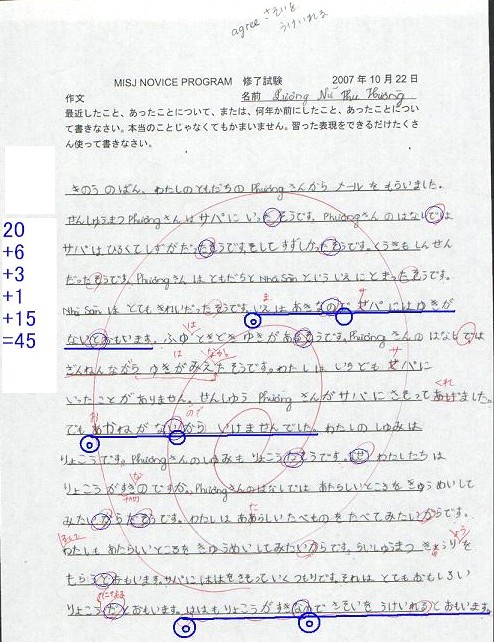 agree さそいを
うけいれる
MISJ NOVICE PROGRAM 修了試験 2007 年 10 月 22 日
作文 名前 Lương Nữ Thu Hương
最近したこと、あったことについて、または、何年か前にしたこと、あったことについ
て書きなさい。本当のことじゃなくてもかまいません。習った表現をできるだけたくさ
ん使って書きなさい。
きのうのばん、わたしのともだちの Phươngさんから メールを もらいました。
せんしゅうまつ Phươngさんは サパに いったそうです。Phươngさん のはなしでは
サパは ひろくて しずかだったそうです。そして すずしかったそうです。くうきも しんせん
だったそうです。Phươngさんは ともだちと Nhà Sàn という いえに とまったそうです。
20
Nhà Sàn は とても きれいだったそうです。いえは あきなので サパには ゆきが
+6
ないとおもいます。ふゆ ときどき ゆきが あるそうです。Phươngさん のはなしでは
+3
ざんねんながら ゆきがみえたそうです。わたしは いちども サパに
+1
いったことが ありません。せんしゅう Phươngさんが サパに さそって あげました。
+15
でも おかねが ないから いけませんでした。わたしの しゅみは
=45
りょこうです。Phươngさんのしゅみも りょこうだそうです。なぜ わたしたちは
りょこうが すきのですか。Phươngさんのはなしでは あたらしいところを きゅうめいして
みたいからだそうです。わたしは あたらしいたべものを たべてみたいからです。
わたしも あたらしいところを きゅうめいしてみたいからです。らいしゅうまつ きょうりを
もらうとおもいます。サパに ははをさそって いくつもりです。それは とても おもしろい
りょこうだとおもいます。ははも りょこうが すきなので さそいを うけいれると おもいます。